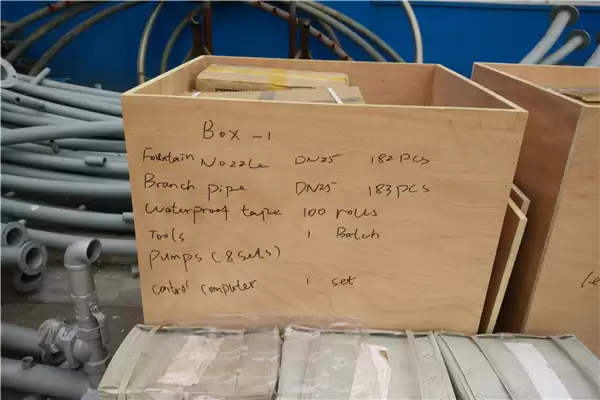 Box -1
Fountain Nozzle DN25 182 pcs
Branch pipe DN25 183 pcs
Waterproof tape 100 rolls
Tools 1 Batch
Pumps (8 sets)
control computer 1 set